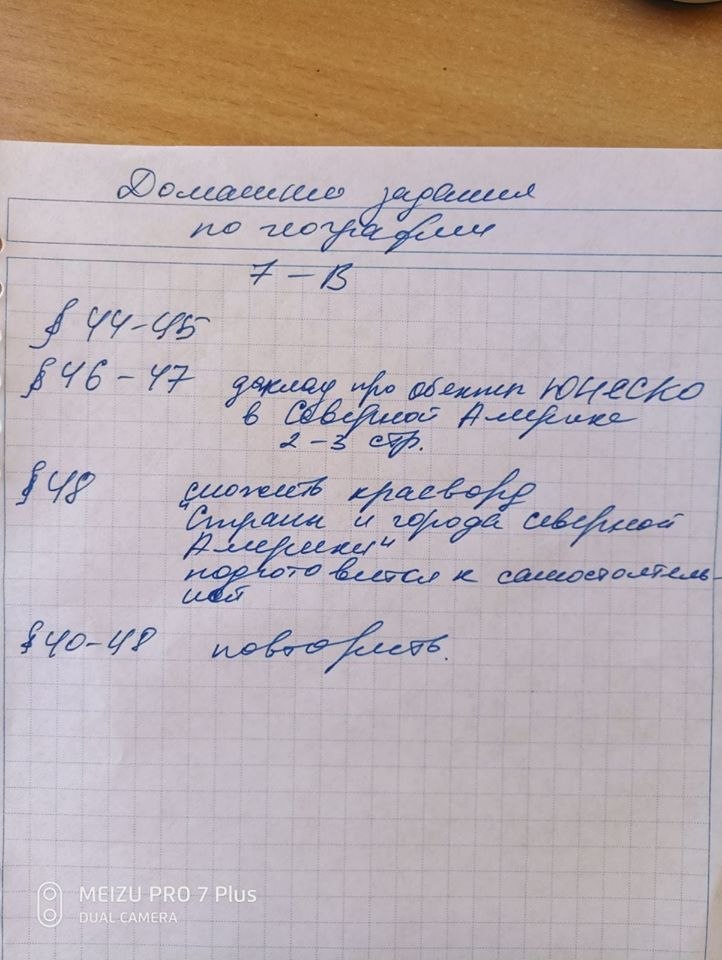 Домашние задания
по географии
7 – В
§ 44-45
§ 46-47 доклад про обекты ЮНЕСКО
в Северной Америке
2-3 стр.
§48 сложить красворд
"Страны и города северной
Америки"
подготовится к самостоятель-
ной
§40-48 повторить.
MEIZU PRO 7 Plus
DUAL CAMERA